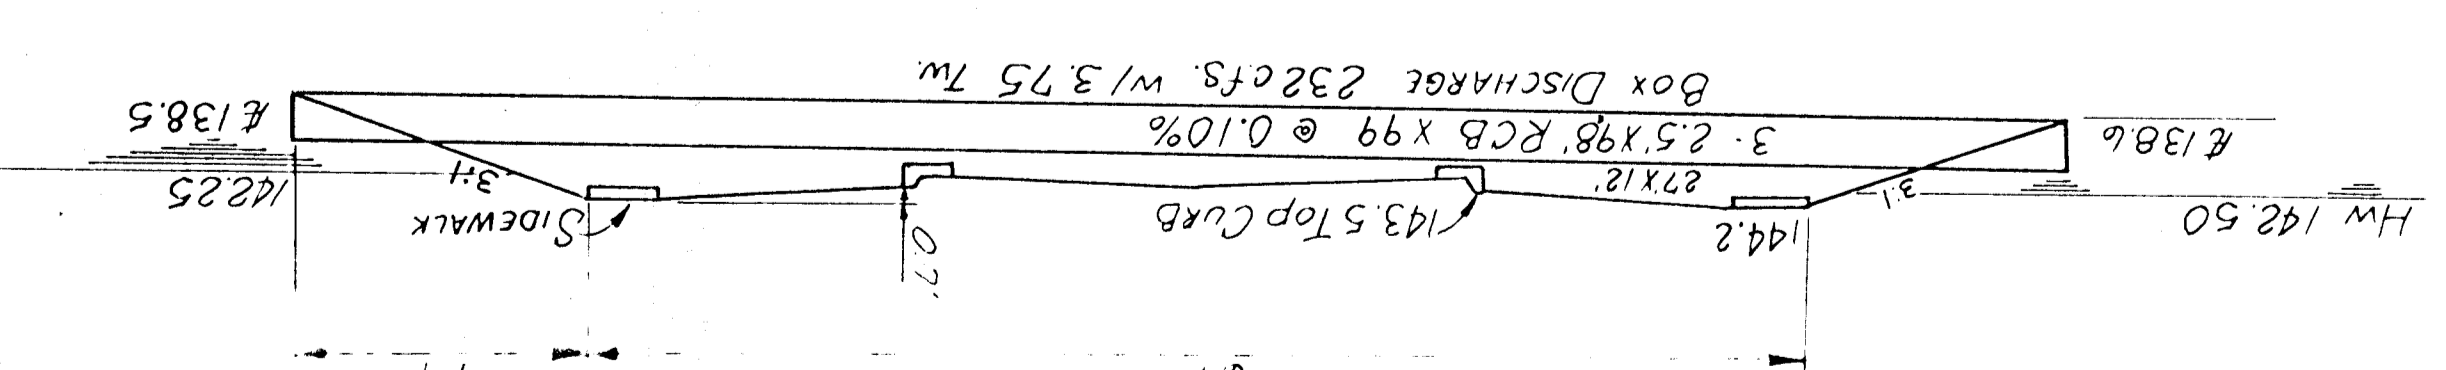 HW 142.50
144.2
143.5 TOP CURB
0.7'
SIDEWALK
142.25
3:1
27'X12'
3:1
FL 138.6
3- 2.5'X98' RCB X 99 @ 0.10%
FL 138.5
BOX DISCHARGE 232 cfs. W/ 3.75 TW.